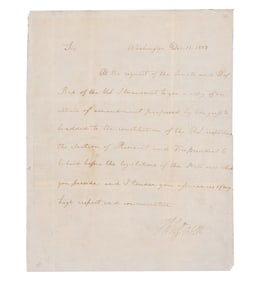 Sir Washington Dec. 12. 1803
At the request of the Senate and H. of
Rep. of the US I transmit to you a copy of an
article of amendment proposed by Congress to
be added to the constitution of the US respecting
the election of President and Vice president to
be laid before the legislature of the State over which
you preside: and I tender you assurances of my
high respect and consideration
Th: Jefferson